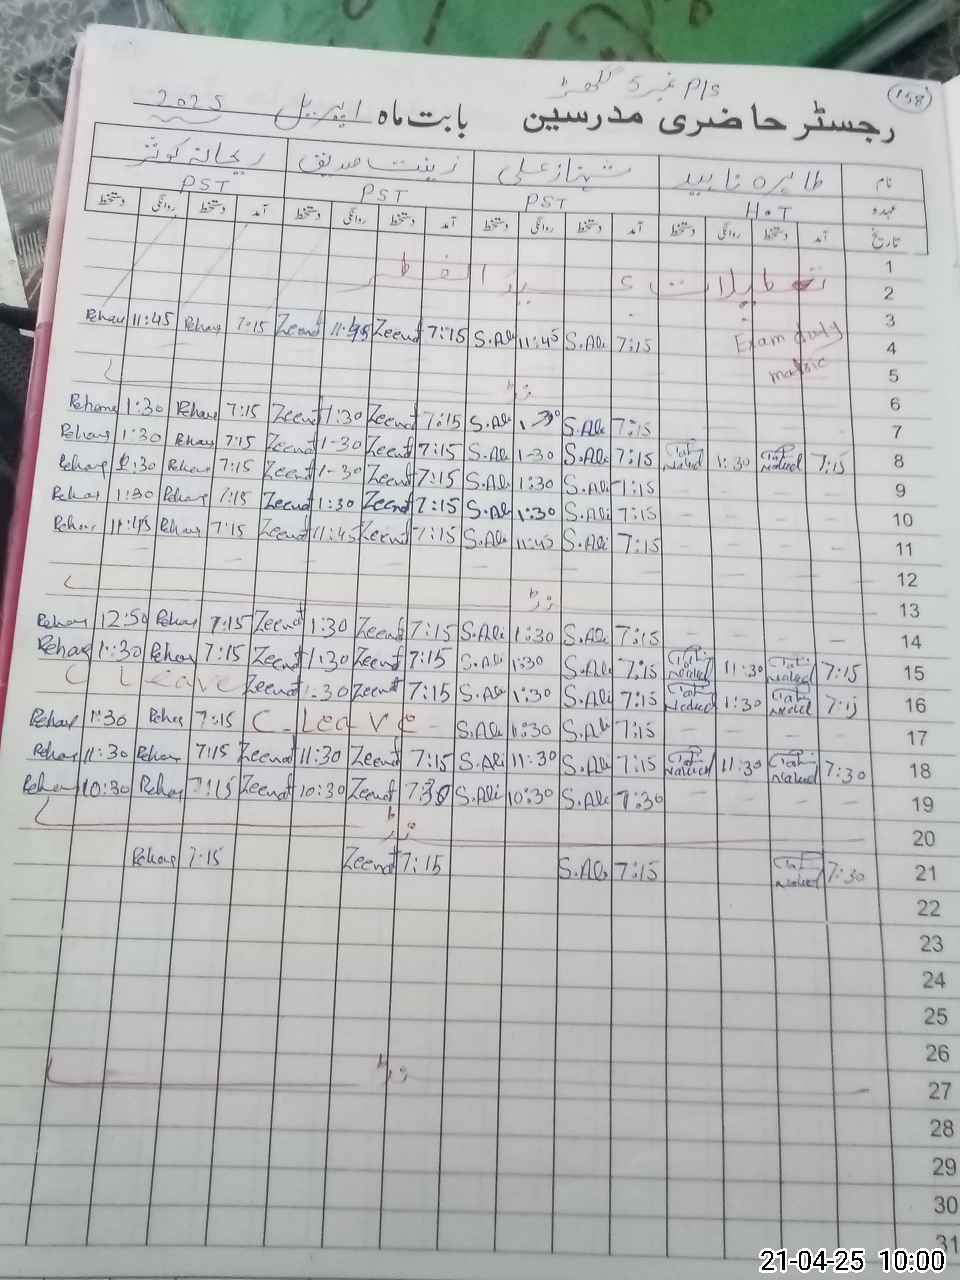 158
P/S نمبر 5 گکھڑ
رجسٹر حاضری مدرسین بابت ماہ اپریل 2025
نام طاہرہ ناہید شہناز علی زینت صدیق ریحانہ کوثر
عہدہ H.T PST PST PST
تاریخ آمد دستخط روانگی دستخط آمد دستخط روانگی دستخط آمد دستخط روانگی دستخط آمد دستخط روانگی دستخط
1 تعطیلات عید الفطر
2
3
4 Exam duty 7:15 S.Ali 11:45 S.Ali 7:15 Zeenat 11:45 Zeenat 7:15 Rehan 11:45 Rehan
5 matric
6
7 7:15 S.Ali 7:15 Zeenat 1:30 Zeenat 7:15 Rehan 1:30 Rehana
8 7:15 1:30 7:15 S.Ali 1-30 S.Ali 7:15 Zeenat 1-30 Zeenat 7:15 Rehan 1:30 Rehan
9 S.Ali 1:30 S.Ali 7:15 Zeenat 1-30 Zeenat 7:15 Rehan Rehan
10 7:15 S.Ali 1:30 S.Ali 7:15 Zeenat 1:30 Zeenat 7:15 Rehan 1:30 Rehan
11 7:15 S.Ali 11:45 S.Ali 7:15 Zeenat 11:45 Zeenat 7:15 Rehan 11:45 Rehan
12
13
14 7:15 S.Ali 1:30 S.Ali 7:15 Zeenat 1:30 Zeenat 7:15 Rehan 12:50 Rehan
15 7:15 11:30 7:15 S.Ali 1:30 S.Ali 7:15 Zeenat 1:30 Zeenat 7:15 Rehan 1:30 Rehan
16 7:15 1:30 7:15 S.Ali 1:30 S.Ali 7:15 Zeenat 1:30 Zeenat C Leave
17 7:15 S.Ali 1:30 S.Ali C-Leave 7:15 Rehan 1:30 Rehan
18 7:30 11:30 7:15 S.Ali 11:30 S.Ali 7:15 Zeenat 11:30 Zeenat 7:15 Rehan 11:30 Rehan
19 7:30 S.Ali 10:30 S.Ali 7:30 Zeenat 10:30 Zeenat 7:15 Rehan 10:30 Rehan
20
21 7:30 7:15 S.Ali 7:15 Zeenat 7:15 Rehan
22
23
24
25
26
27
28
29
30
31
21-04-25 10:00